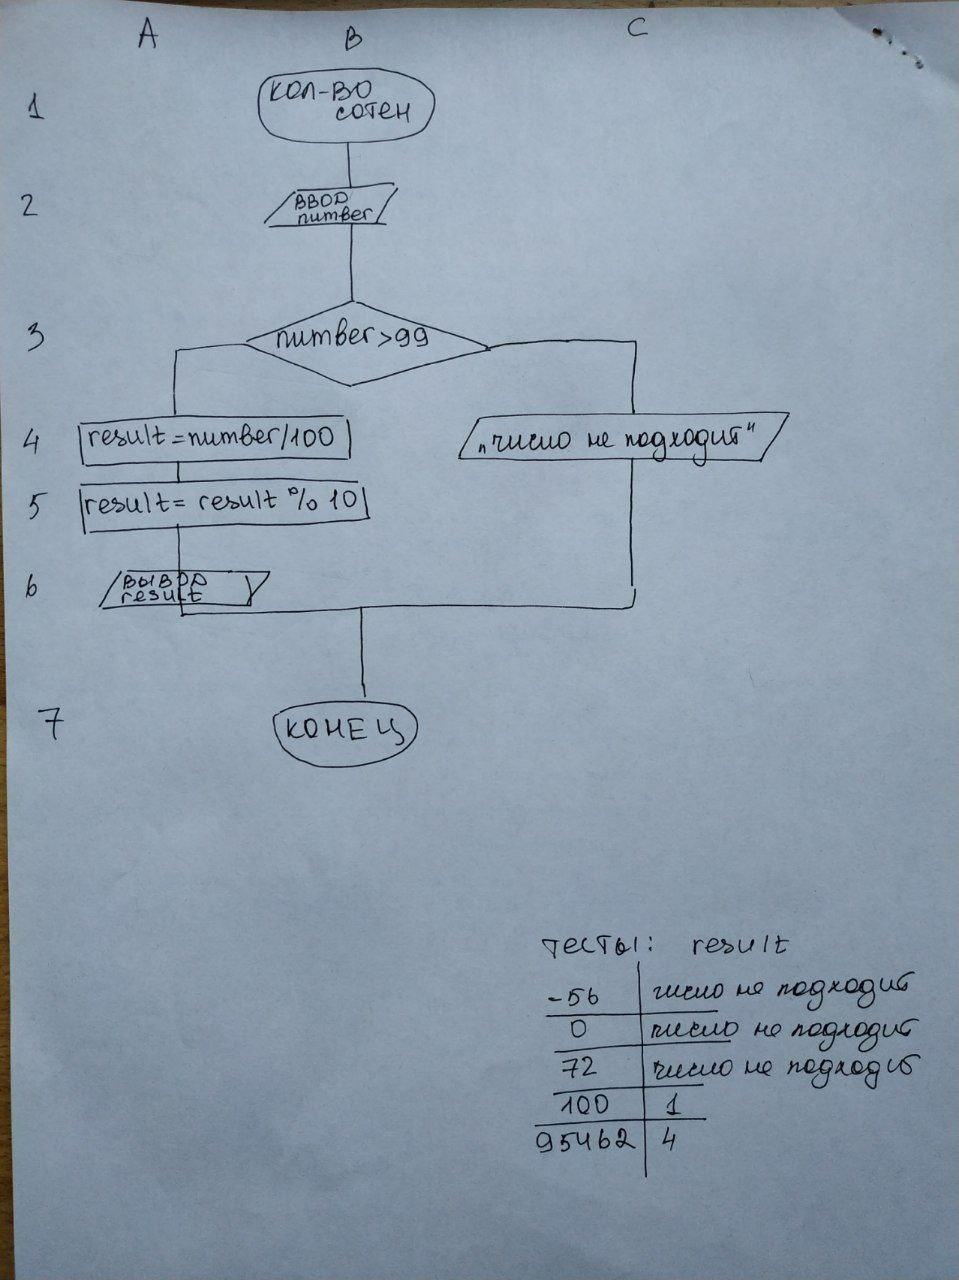 A B C
1 КОЛ-ВО
СОТЕН
2 ВВОД
number
3 number>99
4 result=number/100 „число не подходит"
5 result= result % 10
6 ВЫВОД
result
7 КОНЕЦ
тесты: result
-56 число не подходит
0 число не подходит
72 число не подходит
100 1
95462 4